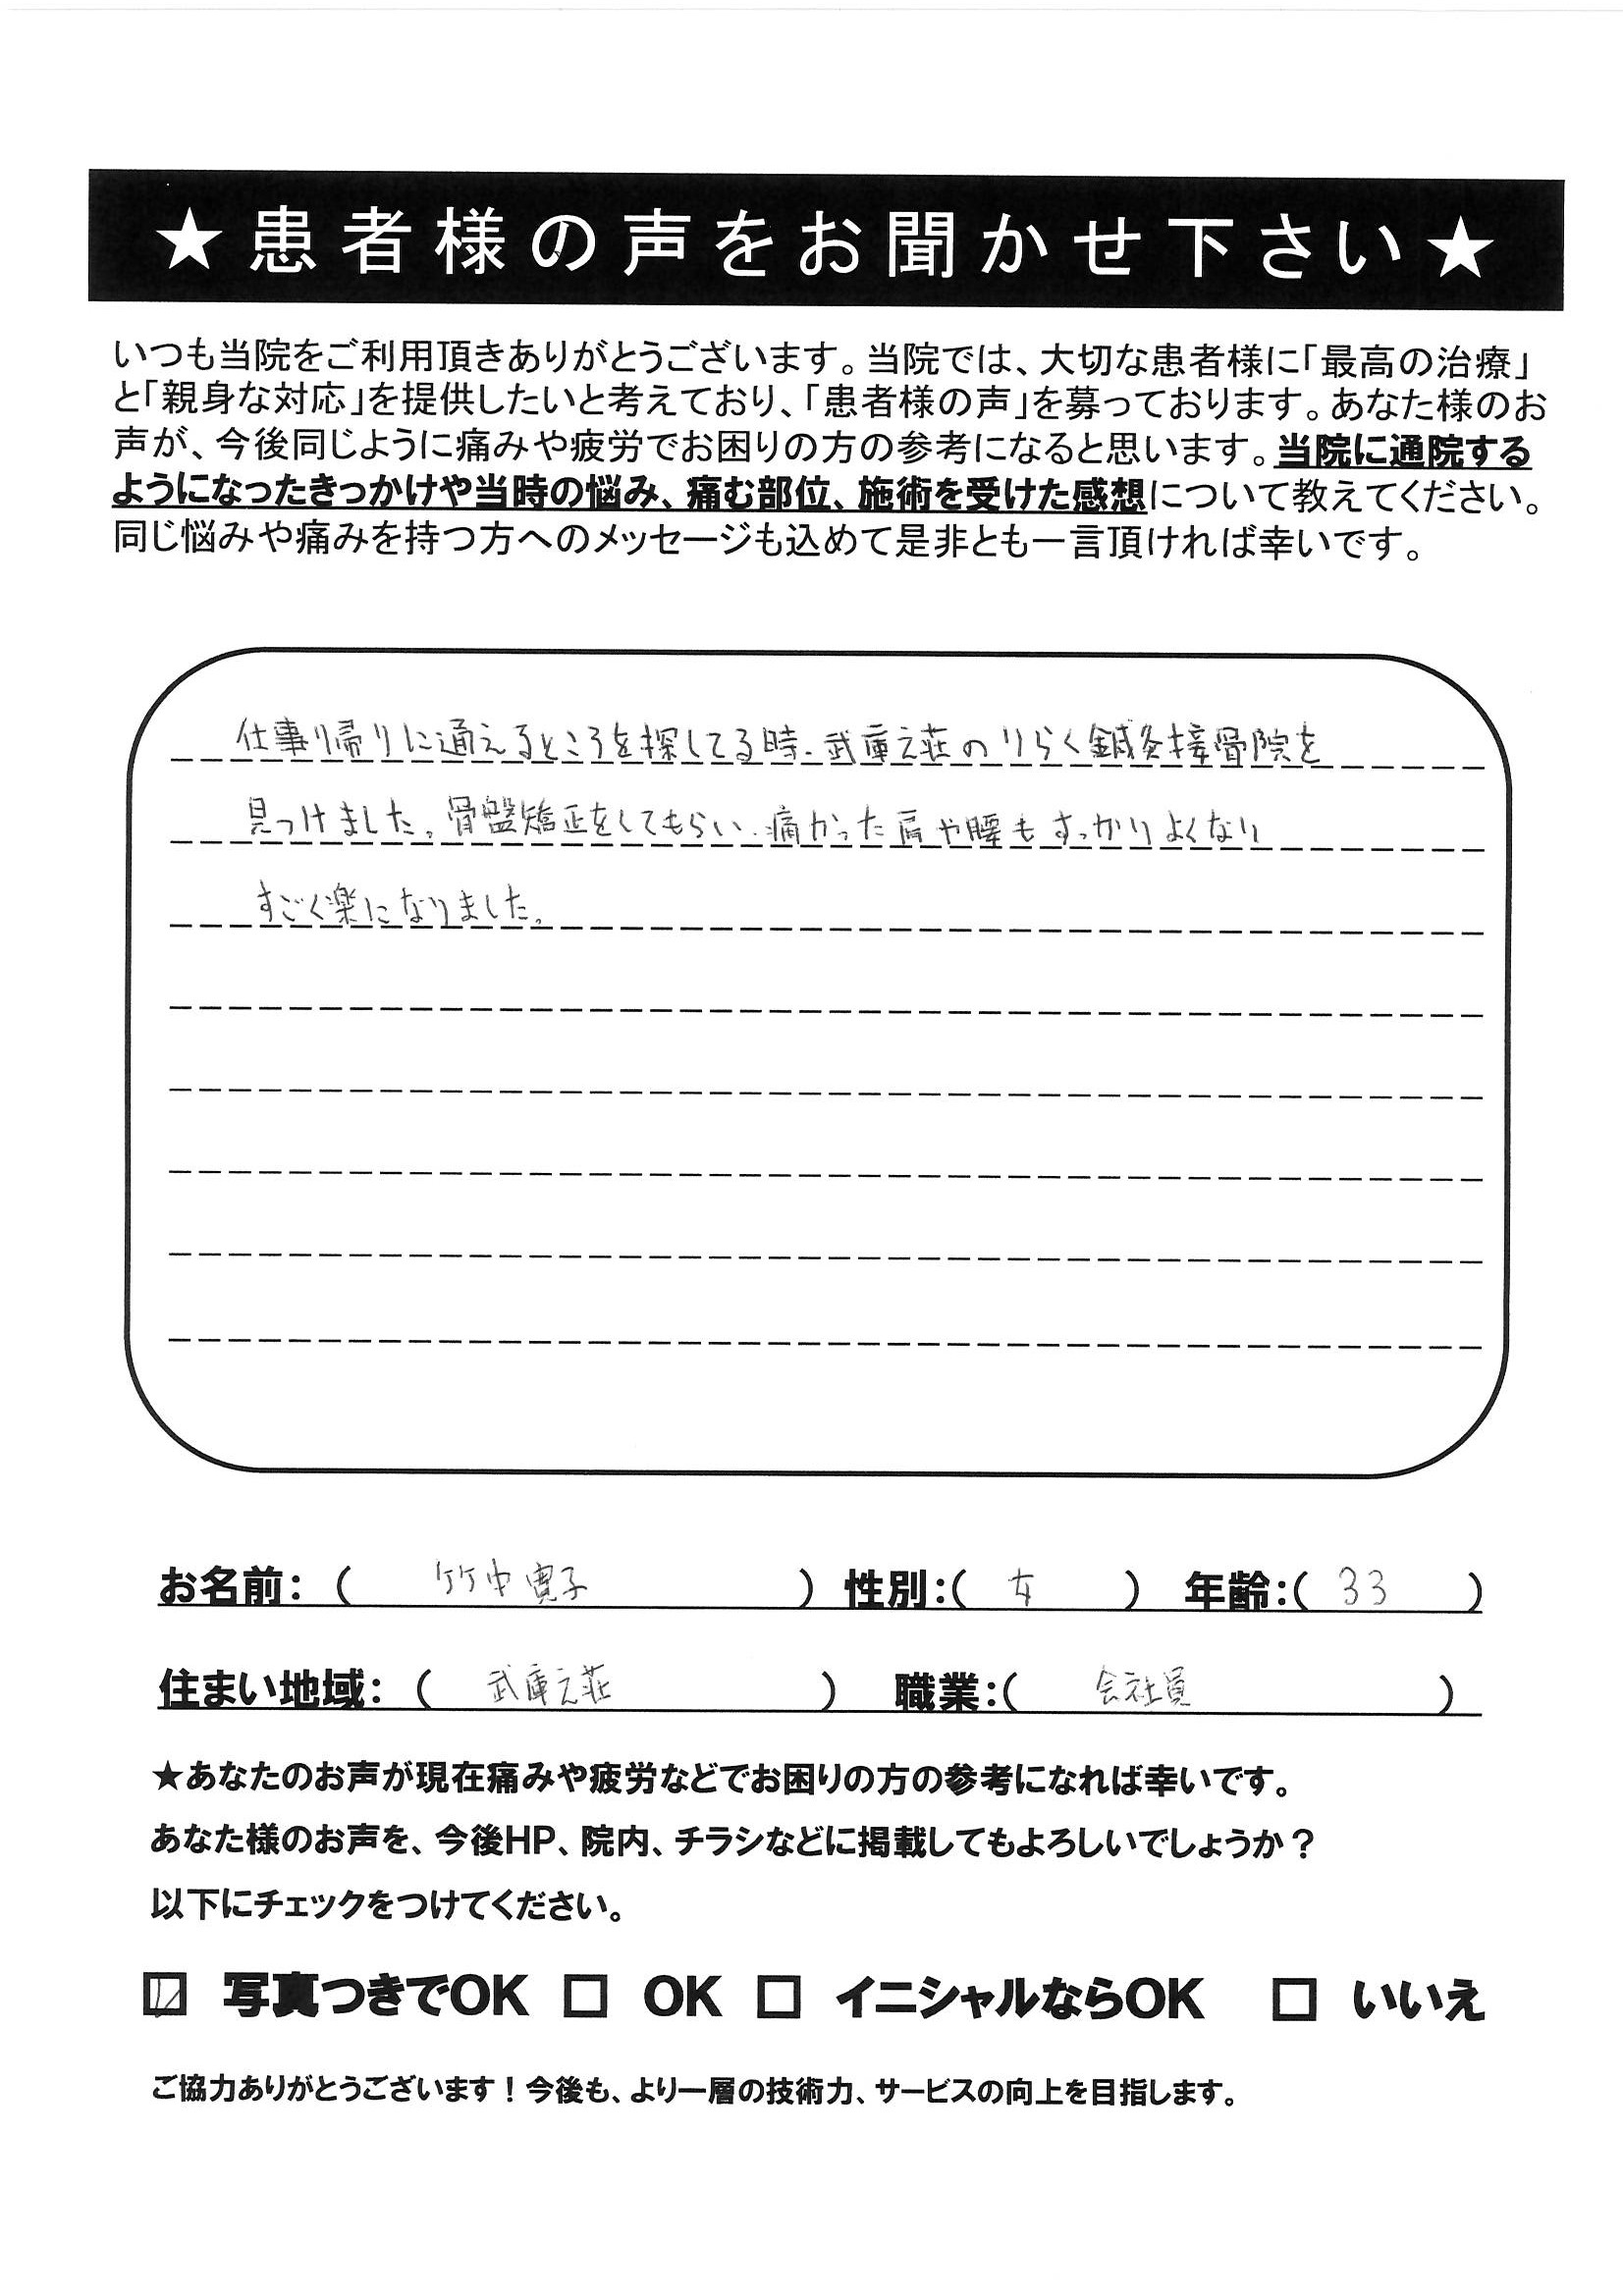 ★患者様の声をお聞かせ下さい★
いつも当院をご利用頂きありがとうございます。当院では、大切な患者様に「最高の治療」
と「親身な対応」を提供したいと考えており、「患者様の声」を募っております。あなた様のお
声が、今後同じように痛みや疲労でお困りの方の参考になると思います。当院に通院する
ようになったきっかけや当時の悩み、痛む部位、施術を受けた感想について教えてください。
同じ悩みや痛みを持つ方へのメッセージも込めて是非とも一言頂ければ幸いです。
仕事帰りに通えるところを探してる時、武庫之荘のりらく鍼灸接骨院を
見つけました。骨盤矯正をしてもらい、痛かった肩や腰もすっかりよくなり
すごく楽になりました。
お名前：（ 竹中寛子 ） 性別：（ 女 ） 年齢：（ 33 ）
住まい地域：（ 武庫之荘 ） 職業：（ 会社員 ）
★あなたのお声が現在痛みや疲労などでお困りの方の参考になれば幸いです。
あなた様のお声を、今後HP、院内、チラシなどに掲載してもよろしいでしょうか？
以下にチェックをつけてください。
☑ 写真つきでOK □ OK □ イニシャルならOK □ いいえ
ご協力ありがとうございます！今後も、より一層の技術力、サービスの向上を目指します。